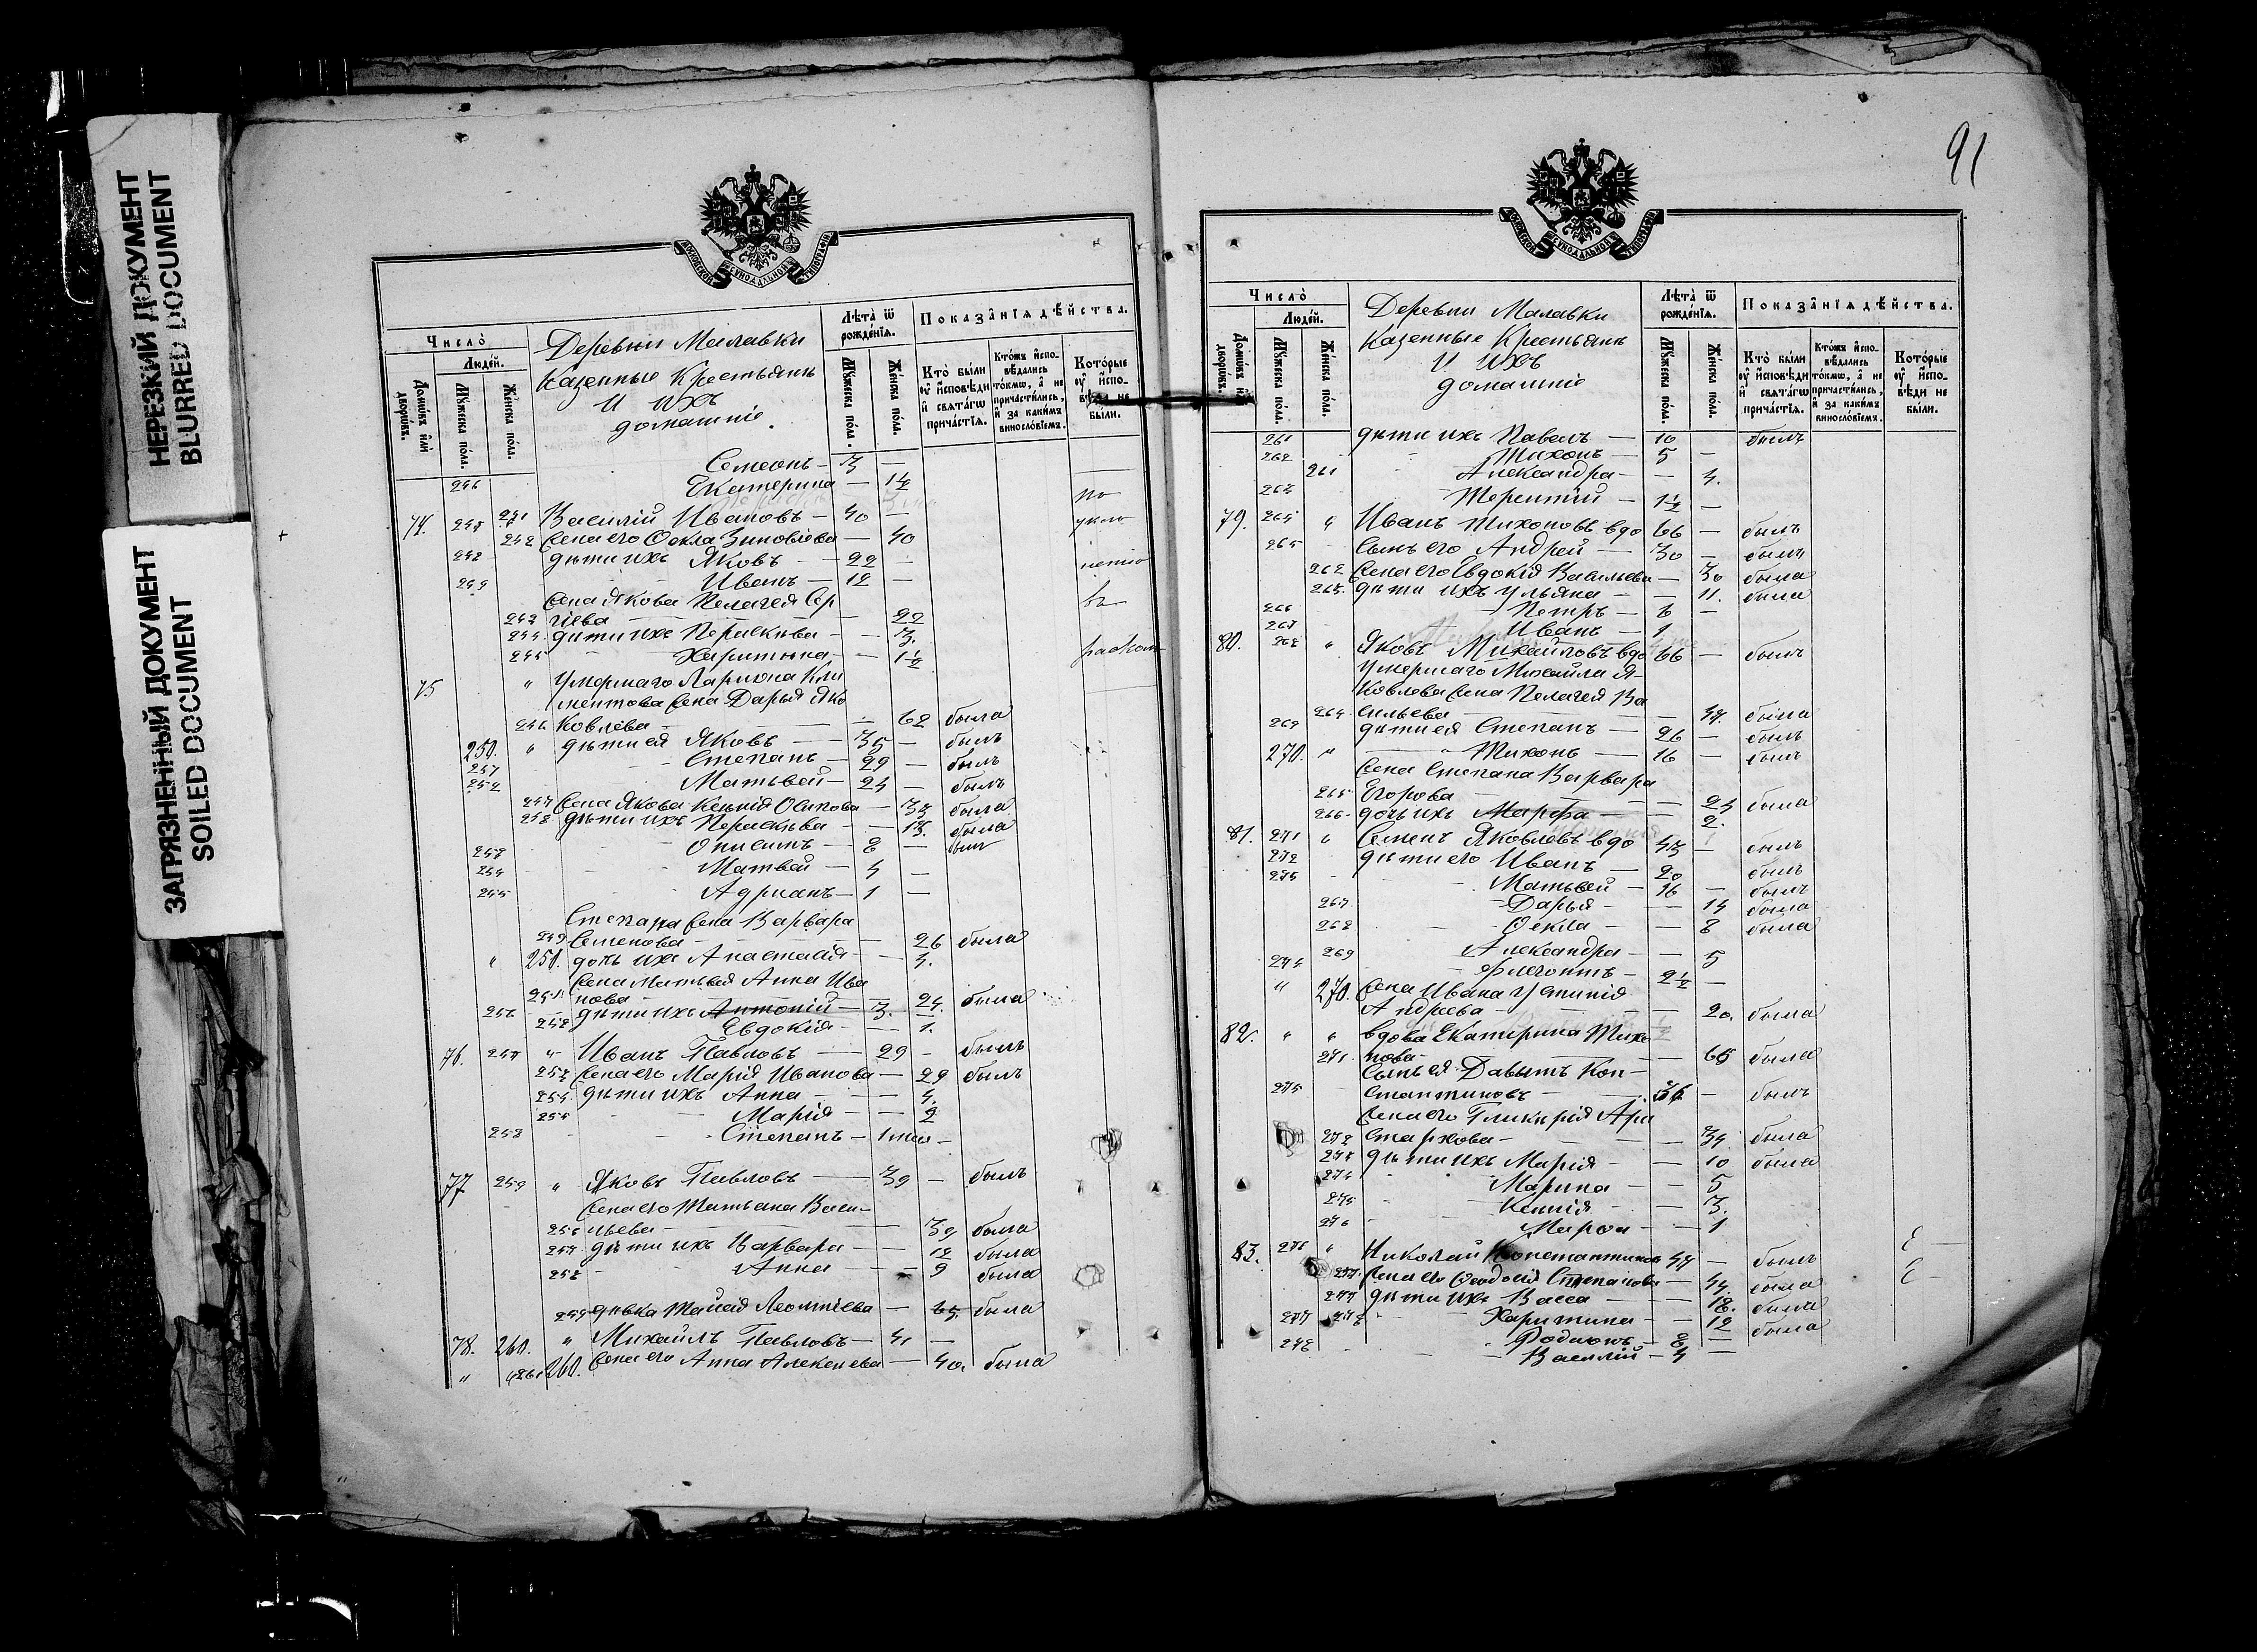 НЕРЕЗКИЙ ДОКУМЕНТ
BLURRED DOCUMENT
ЗАГРЯЗНЕННЫЙ ДОКУМЕНТ
SOILED DOCUMENT
МОСКОВСКОЙ СУНОДАЛЬНОЙ ТИПОГРАФІИ
Число̀
Людей.
Домѡвъ и҆лѝ дворѡвъ.
Мꙋ́жеска пола.
Же́нска пола.
Деревни Малавки
Казенные Крестьяне
и ихъ
домашніе
Лѣта̀ ѿ рожде́нїѧ.
Мꙋ́жеска пола.
Же́нска пола.
Показа̑нїѧ дѣ́йства.
Кто̀ бы́ли оу҆ и҆сповѣди и҆ свѧта́гѡ прича́стїѧ.
Кто́жъ и҆спо-вѣдались то́кмѡ, а҆ не причасти́лись, и҆ за каки́мъ винословїемъ.
Кото́рые оу҆ и҆спо-вѣди не бы́ли.
246 Семеонъ — 3 —
Екатерина — 1½
74. 247 241 Василій Ивановъ — 40 —
242 Жена его Ѳекла Зиновіева — 40
248 дѣти ихъ Яковъ — 22
249 Иванъ — 12 —
Жена Якова Пелагея Сер
243 гіева — 22
244 дѣти ихъ Параскева — 3.
245 Харитина — 1½
75 " Умершаго Лариона Кли
ментова жена Дарья Яко
246 Ковлева — 62 была
250. " дѣти ея Яковъ — 35 — былъ
251 Степанъ — 29 — былъ
252 Матвей — 24 — былъ
247 Жена Якова Ксенія Осипова — 33 была
248 дѣти ихъ Параскева — 13. была
253 Онисимъ — 8 — былъ
254 Матвей — 4 —
255 Адрианъ — 1 —
Степана жена Варвара
249 Семенова — 26 была
" 250. дочь ихъ Анастасія — 4.
Жена Матвея Анна Ива
251 нова — 24. была
256 дѣти ихъ Антоній — 3.
252 Евдокія — 1.
76. 257 " Иванъ Павловъ — 29 — былъ
253 Жена его Марія Иванова — 29 былъ
254 дѣти ихъ Анна — 4.
255 Марія — 2
258 Степанъ — 1
77 259 " Яковъ Павловъ — 39 — былъ
Жена его Татьяна Васи-
256 льева — 39 была
257 дѣти ихъ Варвара — 12 была
258 Анна — 9 была
259 дѣвка Таисія Леонтіева — 65. была
78. 260. " Михаилъ Павловъ — 41 —
" 261 260. Жена его Анна Алексеева — 40. была
91
МОСКОВСКОЙ СУНОДАЛЬНОЙ ТИПОГРАФІИ
Число̀
Людей.
Домѡвъ и҆лѝ дворѡвъ.
Мꙋ́жеска пола.
Же́нска пола.
Деревни Малавки
Казенные Крестьяне
и ихъ
домашніе
Лѣта̀ ѿ рожде́нїѧ.
Мꙋ́жеска пола.
Же́нска пола.
Показа̑нїѧ дѣ́йства.
Кто̀ бы́ли оу҆ и҆сповѣди и҆ свѧта́гѡ прича́стїѧ.
Кто́жъ и҆спо-вѣдались то́кмѡ, а҆ не причасти́лись, и҆ за каки́мъ винословїемъ.
Кото́рые оу҆ и҆спо-вѣди не бы́ли.
261 дѣти ихъ Павелъ — 10 былъ
262 Тихонъ — 5 —
261 Александра — 4.
263 Терентій — 1½ —
79. 264 " Иванъ Тихоновъ вдо 66 — былъ
265 Сынъ его Андрей — 30 — былъ
262 Жена его Евдокія Васильева — 30 была
263. дѣти ихъ Ульяна — 11. была
266 Петръ — 6 —
267 Иванъ — 1
80. 268 " Яковъ Михайловъ вдо 66 — былъ
Умершаго Михайла Я-
ковлева жена Пелагея Ва
264 сильева — 47. была
269 дѣти ея Степанъ — 26 — былъ
270. " Тихонъ — 16 — былъ
Жена Степана Варвара
265 Егорова — 24 была
266 дочь ихъ Марфа — 2.
81. 271 " Семенъ Яковлевъ вдо 43 — былъ
272 дѣти его Иванъ — 20 былъ
273 Матвей — 16 — былъ
267 Дарья — 14 была
268 Ѳекла — 8 была
269 Александра — 5
274 Флегонтъ — 2½ —
" 270. Жена Ивана Устинія
Андреева — 20. была
82. " " вдова Екатерина Тихо
271 нова — 65 была
Сынъ ея Давытъ Кон-
275 стантиновъ — 36 — былъ
Жена его Гликерія Ари
272 стархова — 34 была
273 дѣти ихъ Марія — 10 была
274 Марина — 5
275 Ксенія — 3.
276 Марѳа — 1
83. 276 " Николай Константиновъ 47 — былъ
277 Жена его Ѳеодосія Степанова — 44. была
277 дѣти ихъ Васса — 18. была
277 278 Харитина — 12 была
Родионъ — 8 —
278 Василій — 4 —